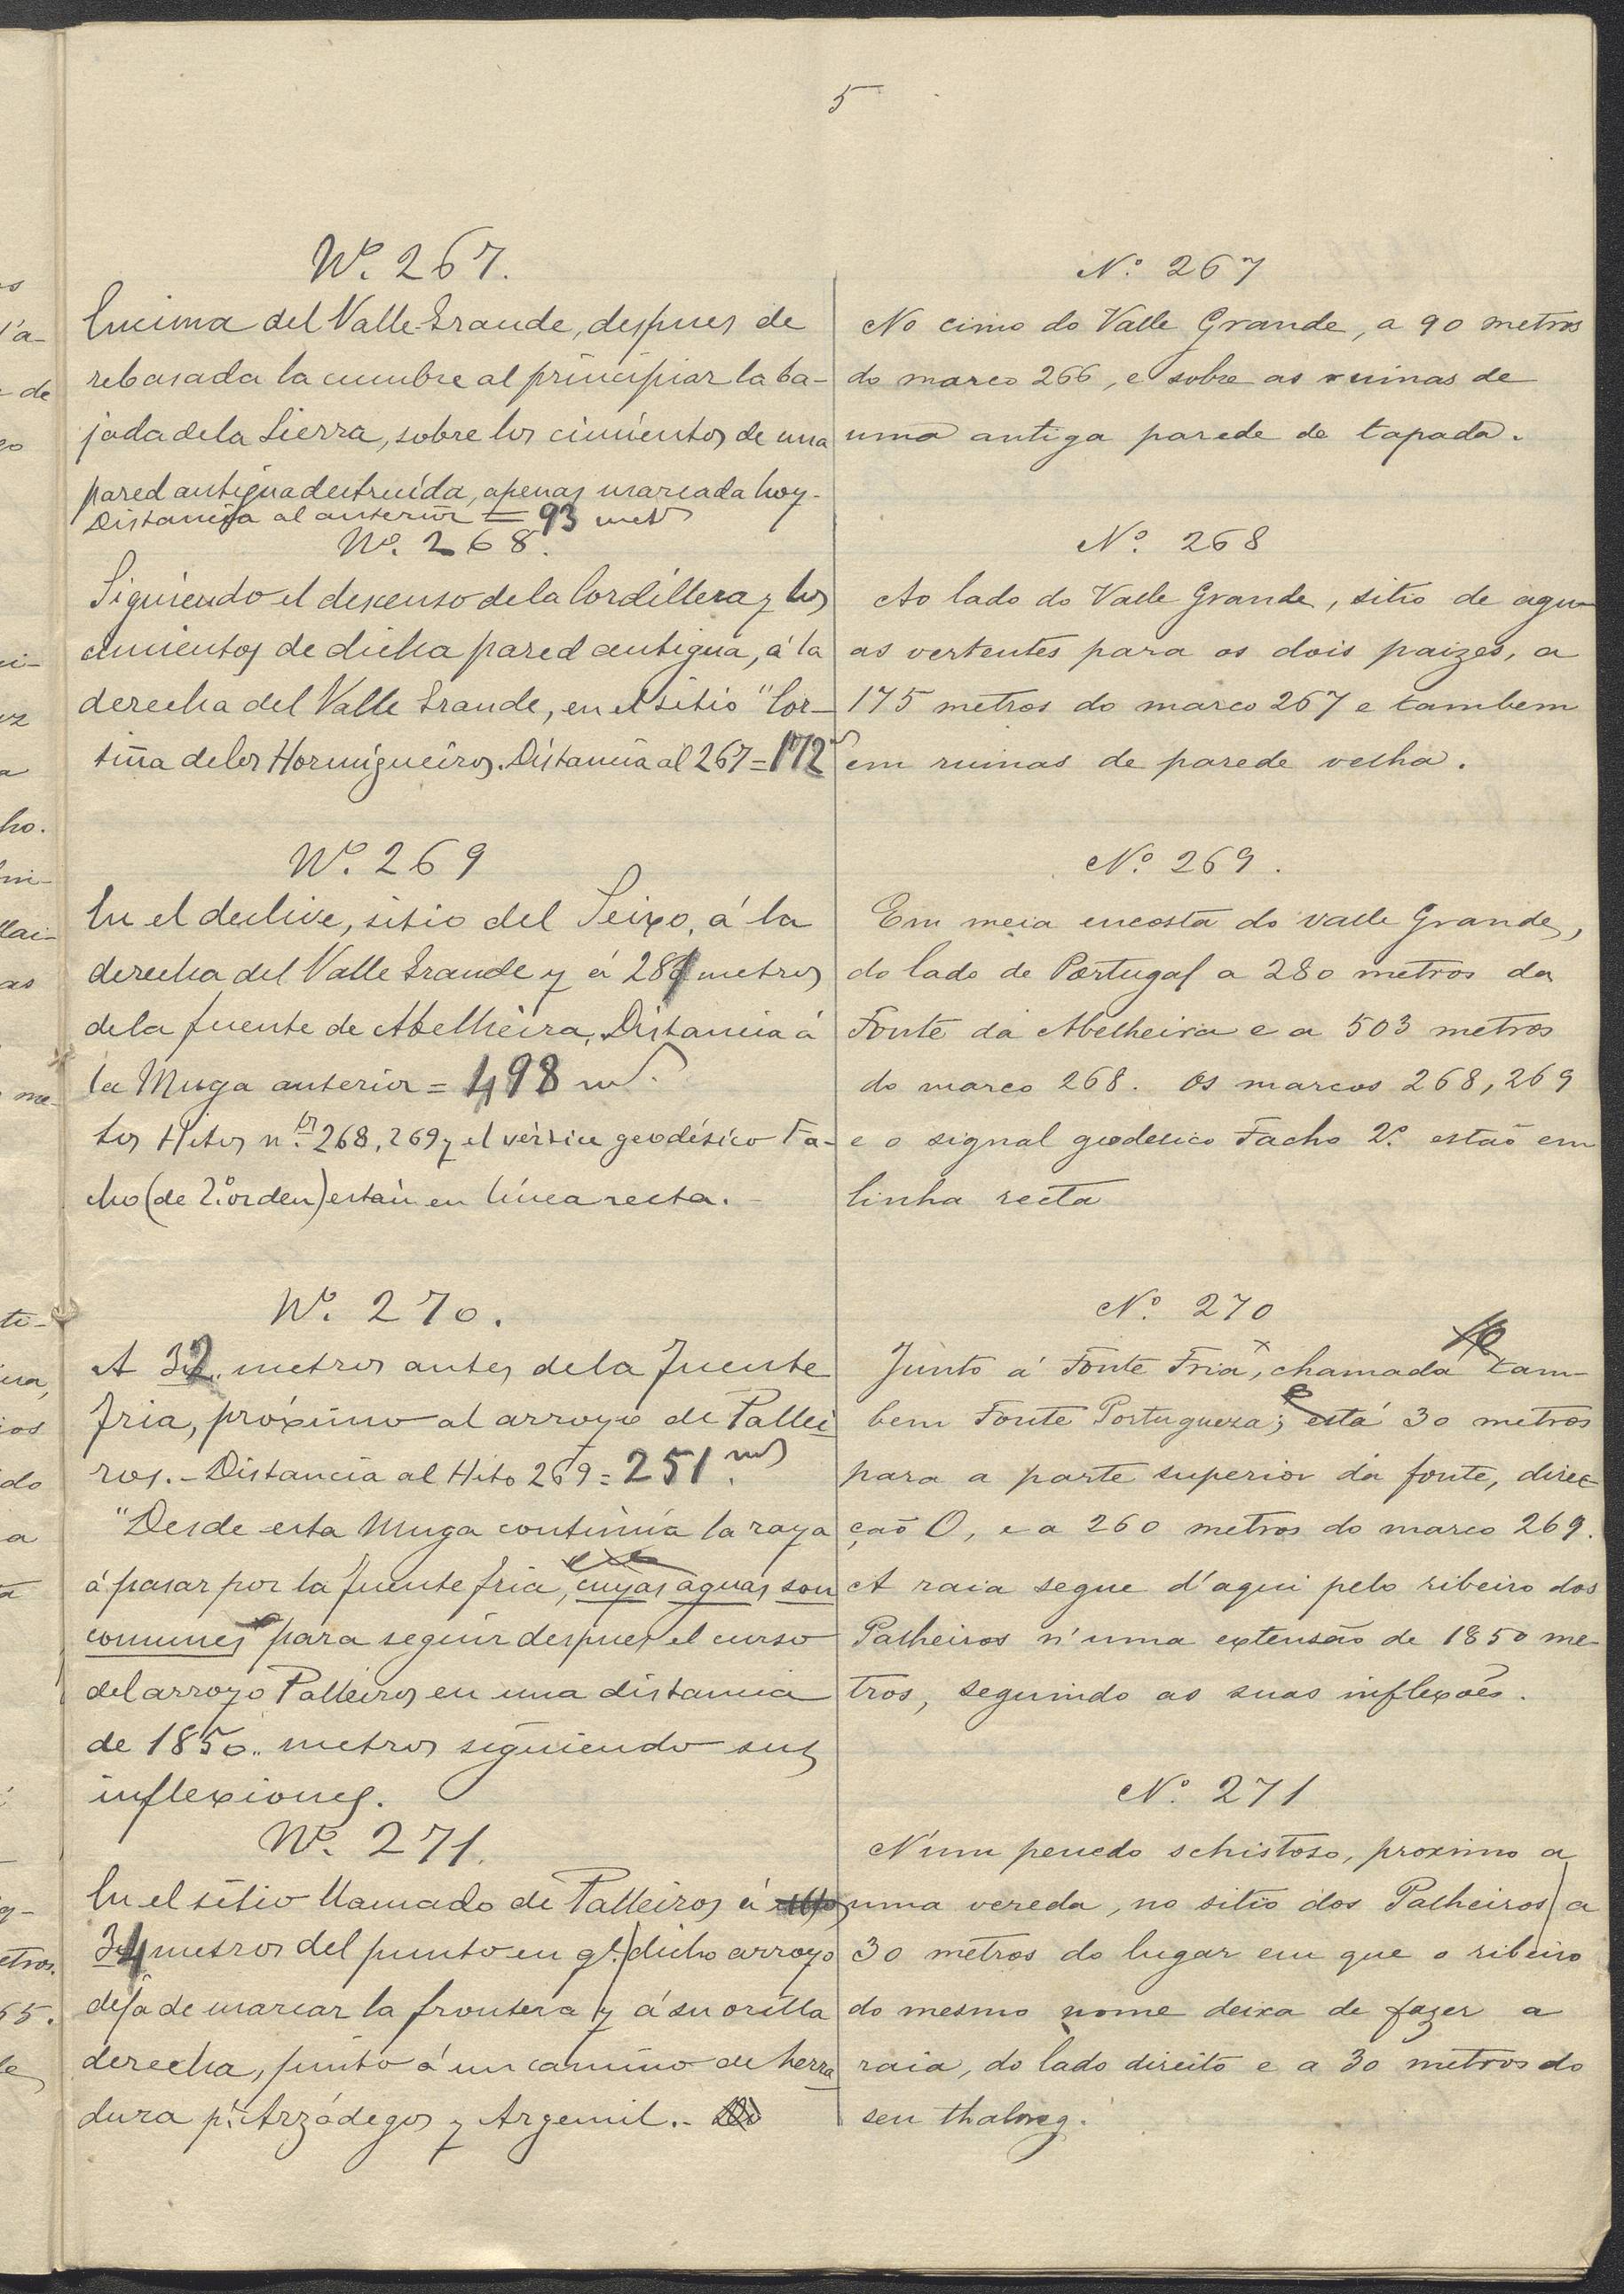 5
Nº. 267.
Encima del Valle Grande, despues de
rebasada la cumbre al principiar la ba-
jada de la Sierra, sobre los cimientos de una
pared antigua destruida, apenas marcada hoy.
Distancia al anterior = 93 mets
Nº. 268.
Siguiendo el descenso de la Cordillera y los
cimientos de dicha pared antigua, á la
derecha del Valle Grande, en el sitio "Cor-
tiña de los Hormigueiros. Distancia al 267 = 172 m
Nº. 269
En el declive, sitio del Seixo, á la
derecha del Valle Grande y á 281 metros
de la fuente de Abelheira. Distancia á
la Muga anterior = 498 m.
Los Hitos n.os 268, 269 y el vértice geodésico Fa-
cho (de 2º. orden) están en línea recta. -
Nº. 270.
A 32.. metros antes de la Fuente
Fria, próximo al arroyo de Pallei
ros. - Distancia al Hito 269 = 251 m.
"Desde esta Muga continúa la raya
á pasar por la fuente fria, cuyas aguas son
comunes para seguir despues el curso
del arroyo Palleiros en una distancia
de 1850.. metros siguiendo sus
inflexiones.
Nº. 271.
En el sitio llamado de Palleiros á
34 metros del punto en q.e dicho arroyo
deja de marcar la frontera y á su orilla
derecha, junto á un camino de herra
dura p.ª Arzádegos y Argemil. -
Nº. 267
No cimo do Valle Grande, a 90 metros
do marco 266, e sobre as ruinas de
uma antiga parede de tapada.
Nº. 268
Ao lado do Valle Grande, sitio de agu-
as vertentes para os dois paizes, a
175 metros do marco 267 e tambem
em ruinas de parede velha.
Nº. 269.
Em meia encosta do Valle Grande,
do lado de Portugal a 280 metros da
Fonte da Abelheira e a 503 metros
do marco 268. Os marcos 268, 269
e o signal geodesico Facho 2º. estão em
linha recta
Nº. 270
Junto á Fonte Fria, chamada tam-
bem Fonte Portugueza; está 30 metros
para a parte superior da fonte, direc-
ção O, e a 260 metros do marco 269.
A raia segue d'aqui pelo ribeiro dos
Palheiros n'uma extensão de 1850 me-
tros, seguindo as suas inflexões.
Nº. 271
N'um penedo schistoso, proximo a
uma vereda, no sitio dos Palheiros a
30 metros do lugar em que o ribeiro
do mesmo nome deixa de fazer a
raia, do lado direito e a 30 metros do
seu thalweg.